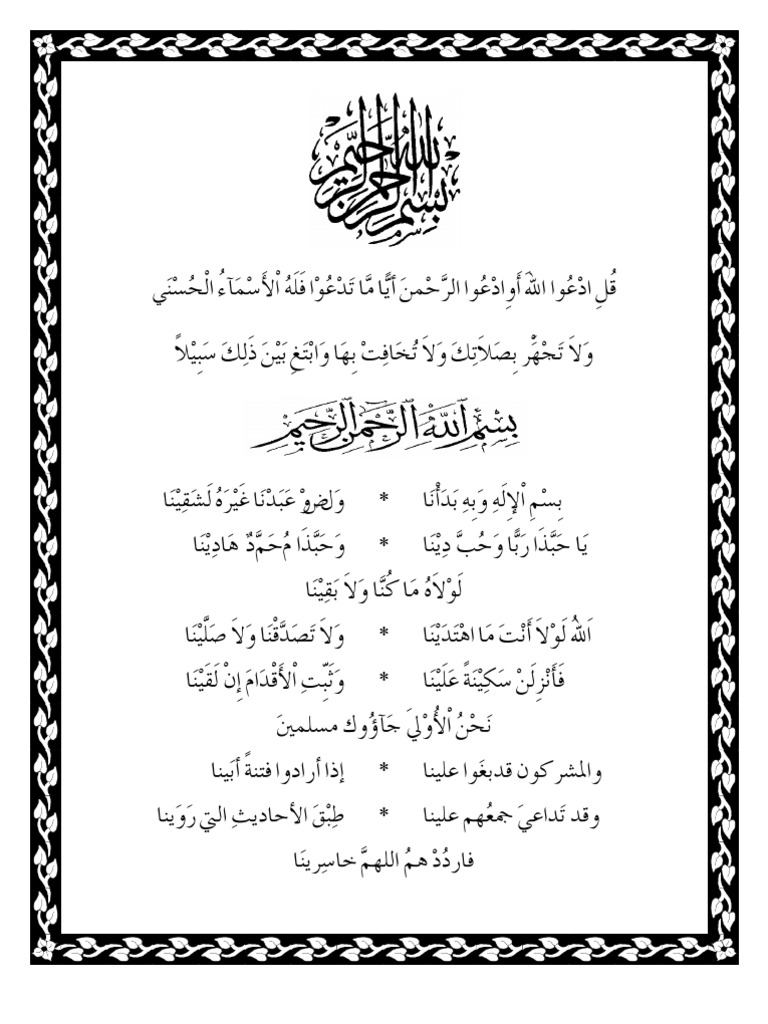 بسم الله الرحمن الرحيم
قُلِ ادْعُوا اللهَ أَوِادْعُوا الرَّحْمنَ أَيًّا مَّا تَدْعُوْا فَلَهُ اْلأَسْمَآءُ الْحُسْنَي
وَلاَ تَجْهَرْ بِصَلاَتِكَ وَلاَ تُخَافِتْ بِهَا وَابْتَغِ بَيْنَ ذَلِكَ سَبِيْلاً
بِسْمِ ٱللَّهِ ٱلرَّحْمَٰنِ ٱلرَّحِيمِ
بِسْمِ اْلإِلَهِ وَبِهِ بَدَأْنَا * عَبَدْنَا غَيْرَهُ لَشَقِيْنَا
يَا حَبَّذَا رَبًّا وَحُبَّ دِيْنَا * وَحَبَّذَا مُحَمَّدٌ هَادِيْنَا
لَوْلاَهُ مَا كُنَّا وَلاَ بَقِيْنَا
اَللهُ لَوْلاَ أَنْتَ مَا اهْتَدَيْنَا * وَلاَ تَصَدَّقْنَا وَلاَ صَلَّيْنَا
فَأَنْزِلَنْ سَكِيْنَةً عَلَيْنَا * وَثَبِّتِ اْلأَقْدَامَ إِنْ لَقَيْنَا
نَحْنُ اْلأُوْلَي جَآؤُوك مسلمينَ
والمشركون قدبغَوا علينا * إذا أرادوا فتنةً أبَينا
وقد تَداعيَ جمعُهم علينا * طِبْقَ الأحاديثِ التي رَوَينا
فاردُدْ همُ اللهمَّ خاسِرينَا